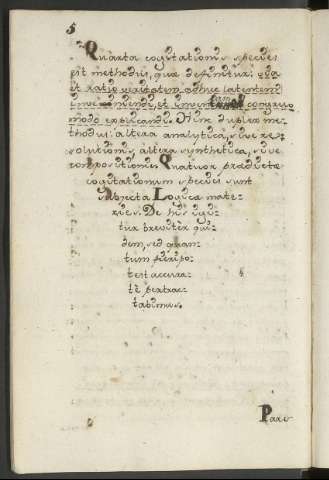 5
Quarta cogitationis species
est methodus, quæ definitur: quæ
est ratio veritatem adhuc latentem
inveniendi, et inventam congruo
modo explicandi. Hinc duplex me-
thodus: altera analytica, sive re-
solutionis, altera synthetica, sive
compositionis. Quatuor prædictæ
cogitationum species sunt
subjecta Logicæ mate-
ries. De his igi-
tur breviter qui-
dem, sed quan-
tum fieri po-
test accura-
te pertrac-
tabimus.
Pars